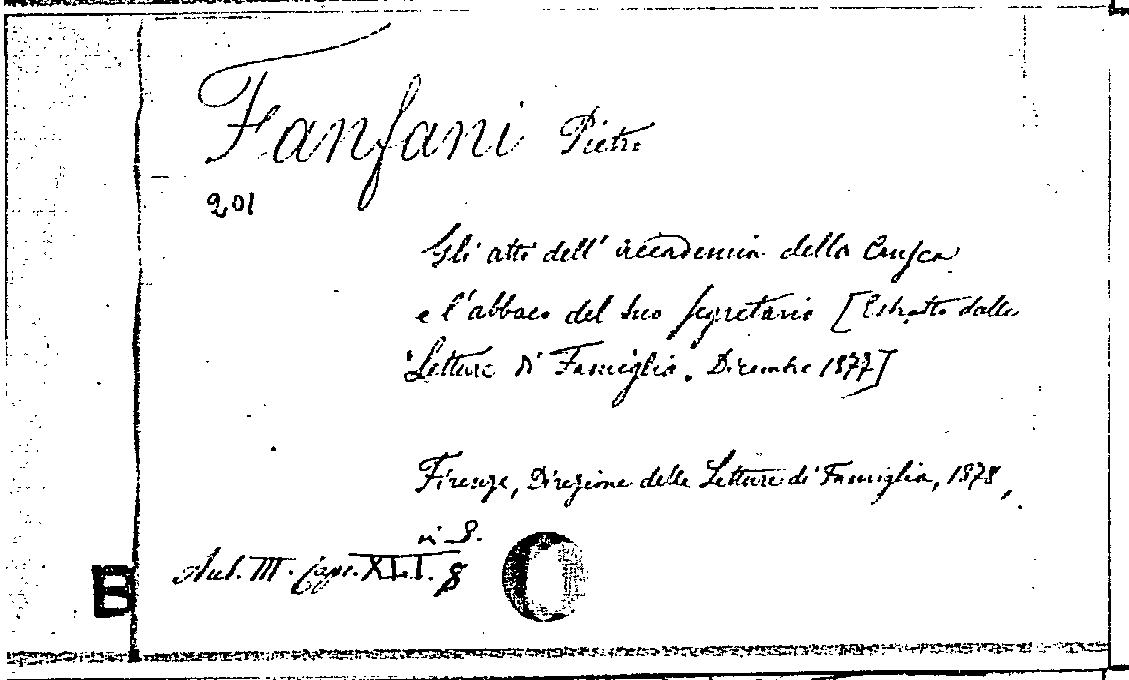 Fanfani Pietro
201
Gli atti dell' Accademia della Crusca
e l'abbaco del suo segretario [Estratto dalle
Letture di Famiglia. Dicembre 1877]
Firenze, Direzione delle Letture di Famiglia, 1878,
in 8.
Aul. III. Caps. XLI. 8
B